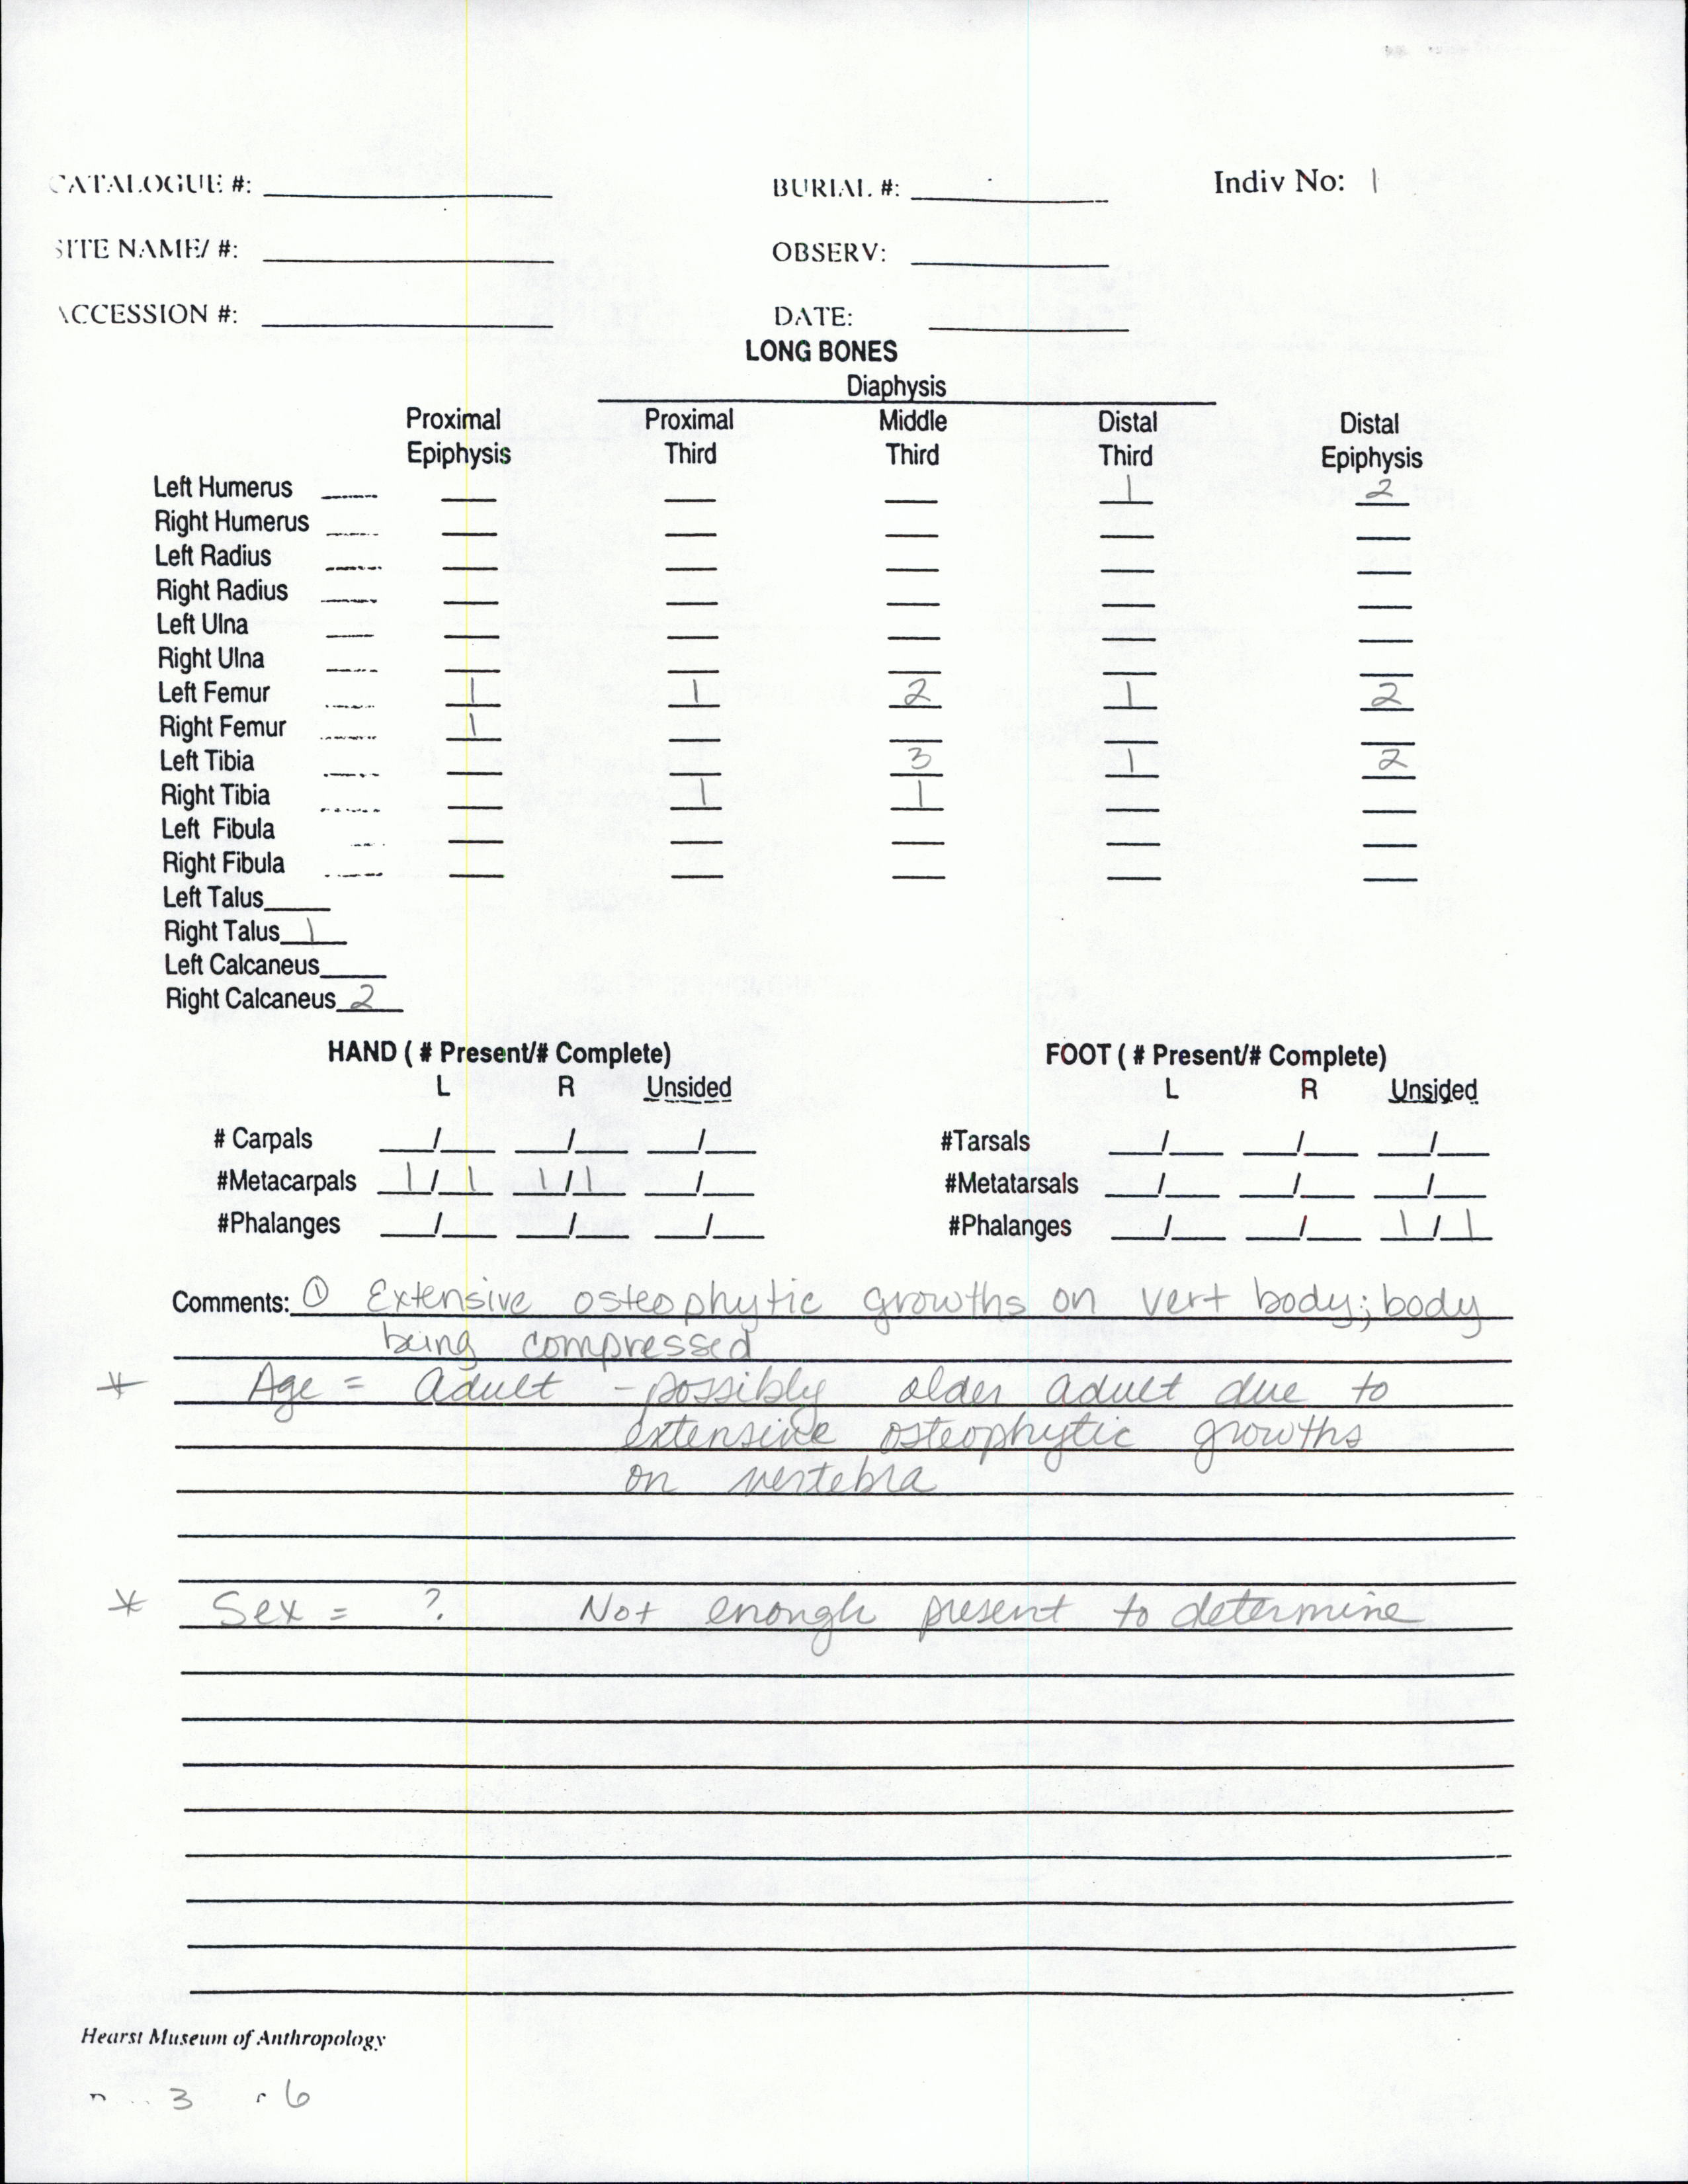 CATALOGUE #: ____ BURIAL #: ____ Indiv No: 1
SITE NAME/ #: ____ OBSERV: ____
ACCESSION #: ____ DATE: ____
LONG BONES
Diaphysis
Proximal Proximal Middle Distal Distal
Epiphysis Third Third Third Epiphysis
Left Humerus ____ ____ ____ ____ 1 2
Right Humerus ____ ____ ____ ____ ____ ____
Left Radius ____ ____ ____ ____ ____ ____
Right Radius ____ ____ ____ ____ ____ ____
Left Ulna ____ ____ ____ ____ ____ ____
Right Ulna ____ ____ ____ ____ ____ ____
Left Femur ____ 1 1 2 1 2
Right Femur ____ 1 ____ ____ ____ ____
Left Tibia ____ ____ ____ 3 1 2
Right Tibia ____ ____ 1 1 ____ ____
Left Fibula ____ ____ ____ ____ ____ ____
Right Fibula ____ ____ ____ ____ ____ ____
Left Talus____
Right Talus 1
Left Calcaneus____
Right Calcaneus 2
HAND ( # Present/# Complete) FOOT ( # Present/# Complete)
L R Unsided L R Unsided
# Carpals __/__ __/__ __/__ #Tarsals __/__ __/__ __/__
#Metacarpals 1/1 1/1 __/__ #Metatarsals __/__ __/__ __/__
#Phalanges __/__ __/__ __/__ #Phalanges __/__ __/__ 1/1
Comments: ① Extensive osteophytic growths on vert body; body
being compressed
* Age = Adult - possibly older adult due to
extensive osteophytic growths
on vertebra
* Sex = ? Not enough present to determine
Hearst Museum of Anthropology
3 6